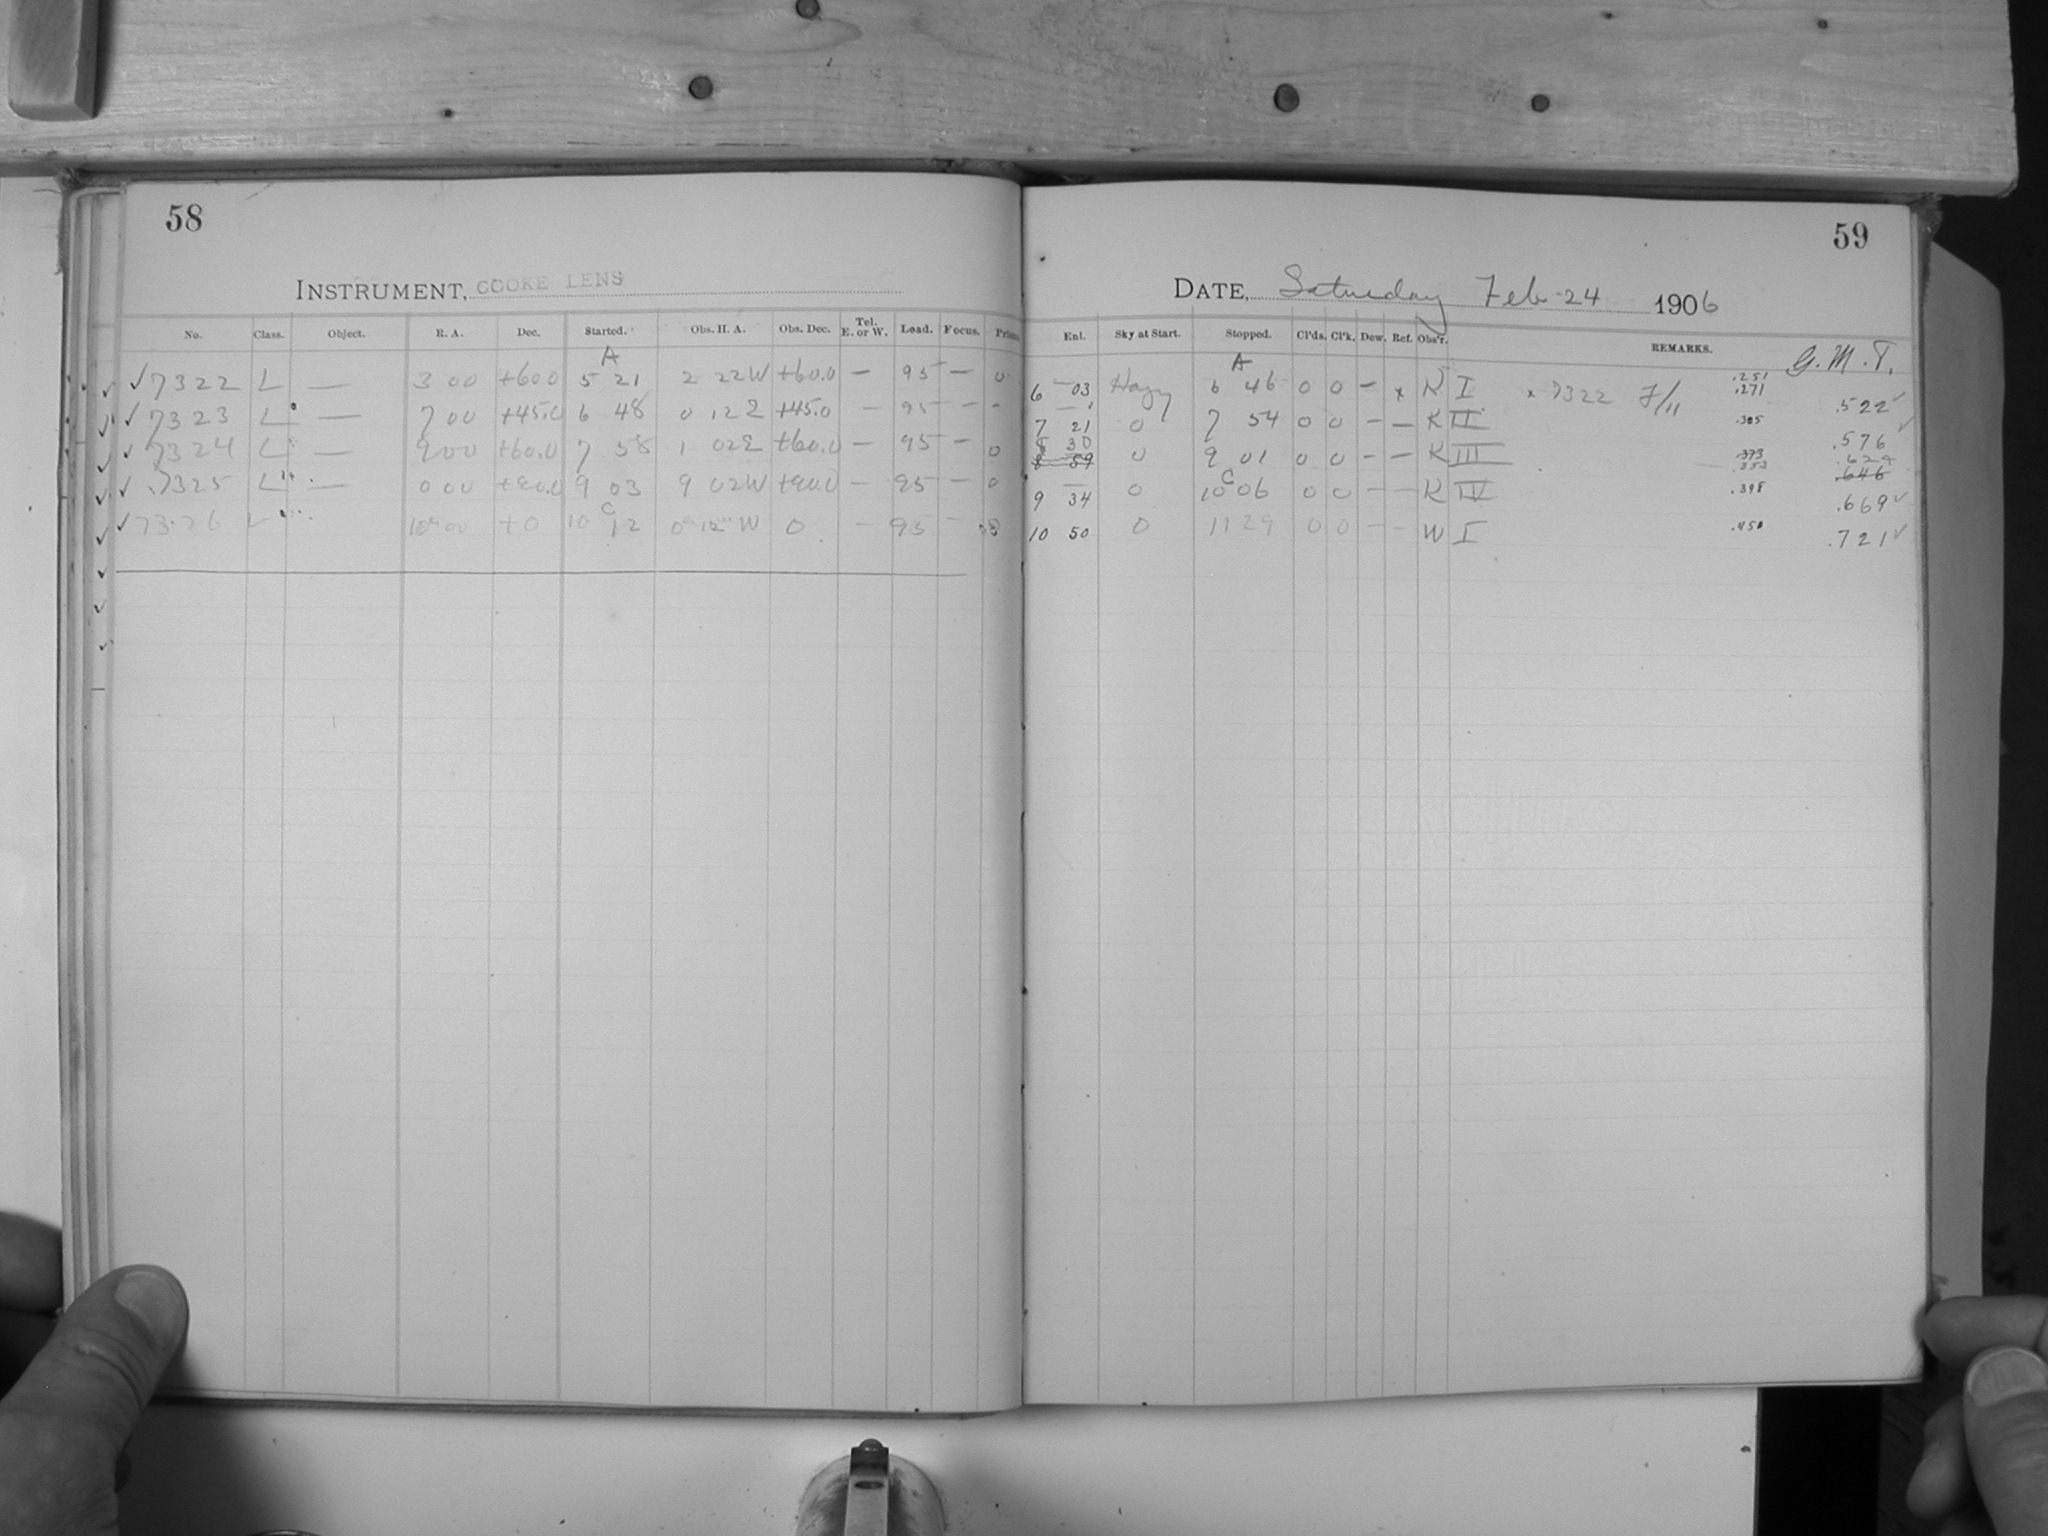 58
INSTRUMENT, COOKE LENS
No. Class. Object. R. A. Dec. Started. Obs. H. A. Obs. Dec. Tel. E. or W. Load. Focus. Prism
A
✓ 7322 L — 3 00 +60.0 5 21 2 22W +60.0 — 95 — 0
✓ 7323 L — 7 00 +45.0 6 48 0 12E +45.0 — 95 — -
✓ 7324 L — 9 00 +60.0 7 58 1 02E +60.0 — 95 — 0
✓ 7325 L — 0 00 +90.0 9 03 9 02W +90.0 — 95 — 0
C
✓ 7326 L 10 00 +0 10 12 0 12 W 0 — 95 —
59
DATE, Saturday Feb 24 1906
Ent. Sky at Start. Stopped. Cl'ds. Cl'k. Dew. Ref. Obs'r. REMARKS. G. M. T.
A
6 03 Hazy 6 46 0 0 — x K I x 7322 F/11 .251 .271 .522 ✓
7 21 0 7 54 0 0 — — K II .305 .576 ✓
8 30
8 59 0 9 01 0 0 — — K III .373 .353 .646
C
9 34 0 10 06 0 0 — — K IV .398 .669 ✓
10 50 0 11 29 0 0 — — W I .450 .721 ✓